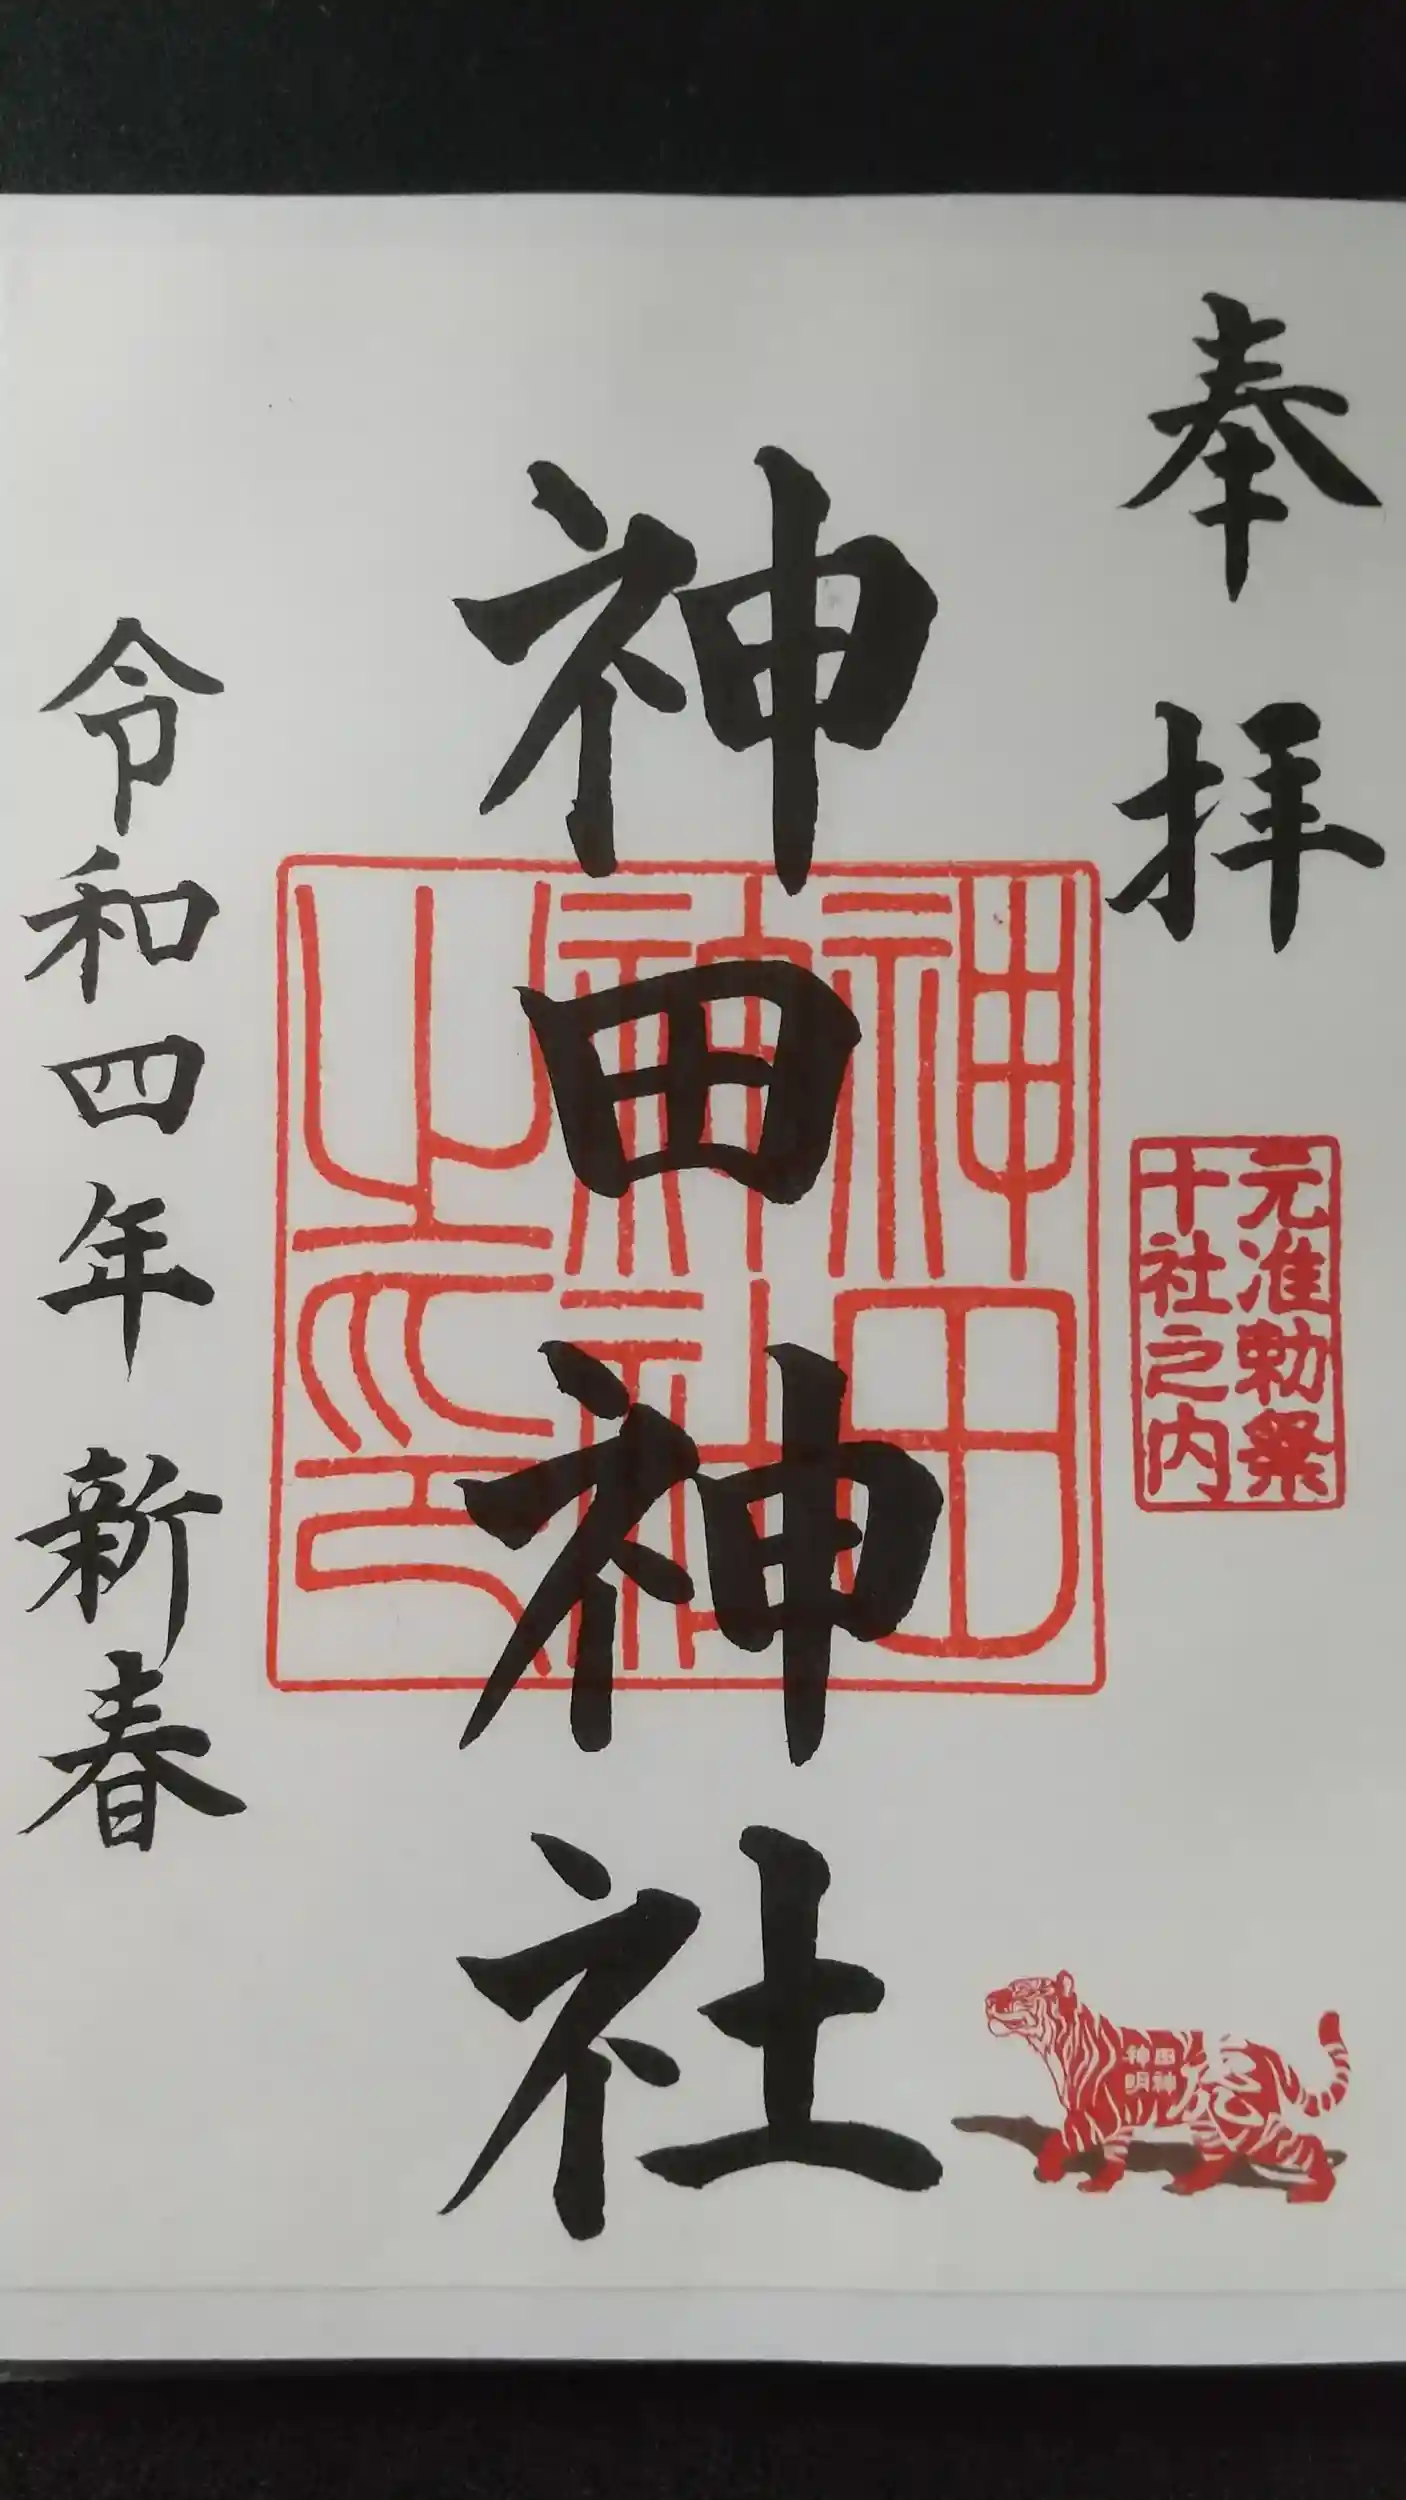 奉拝
元准勅祭
十社之内
神田神社
神田
神社
之印
令和四年 新春